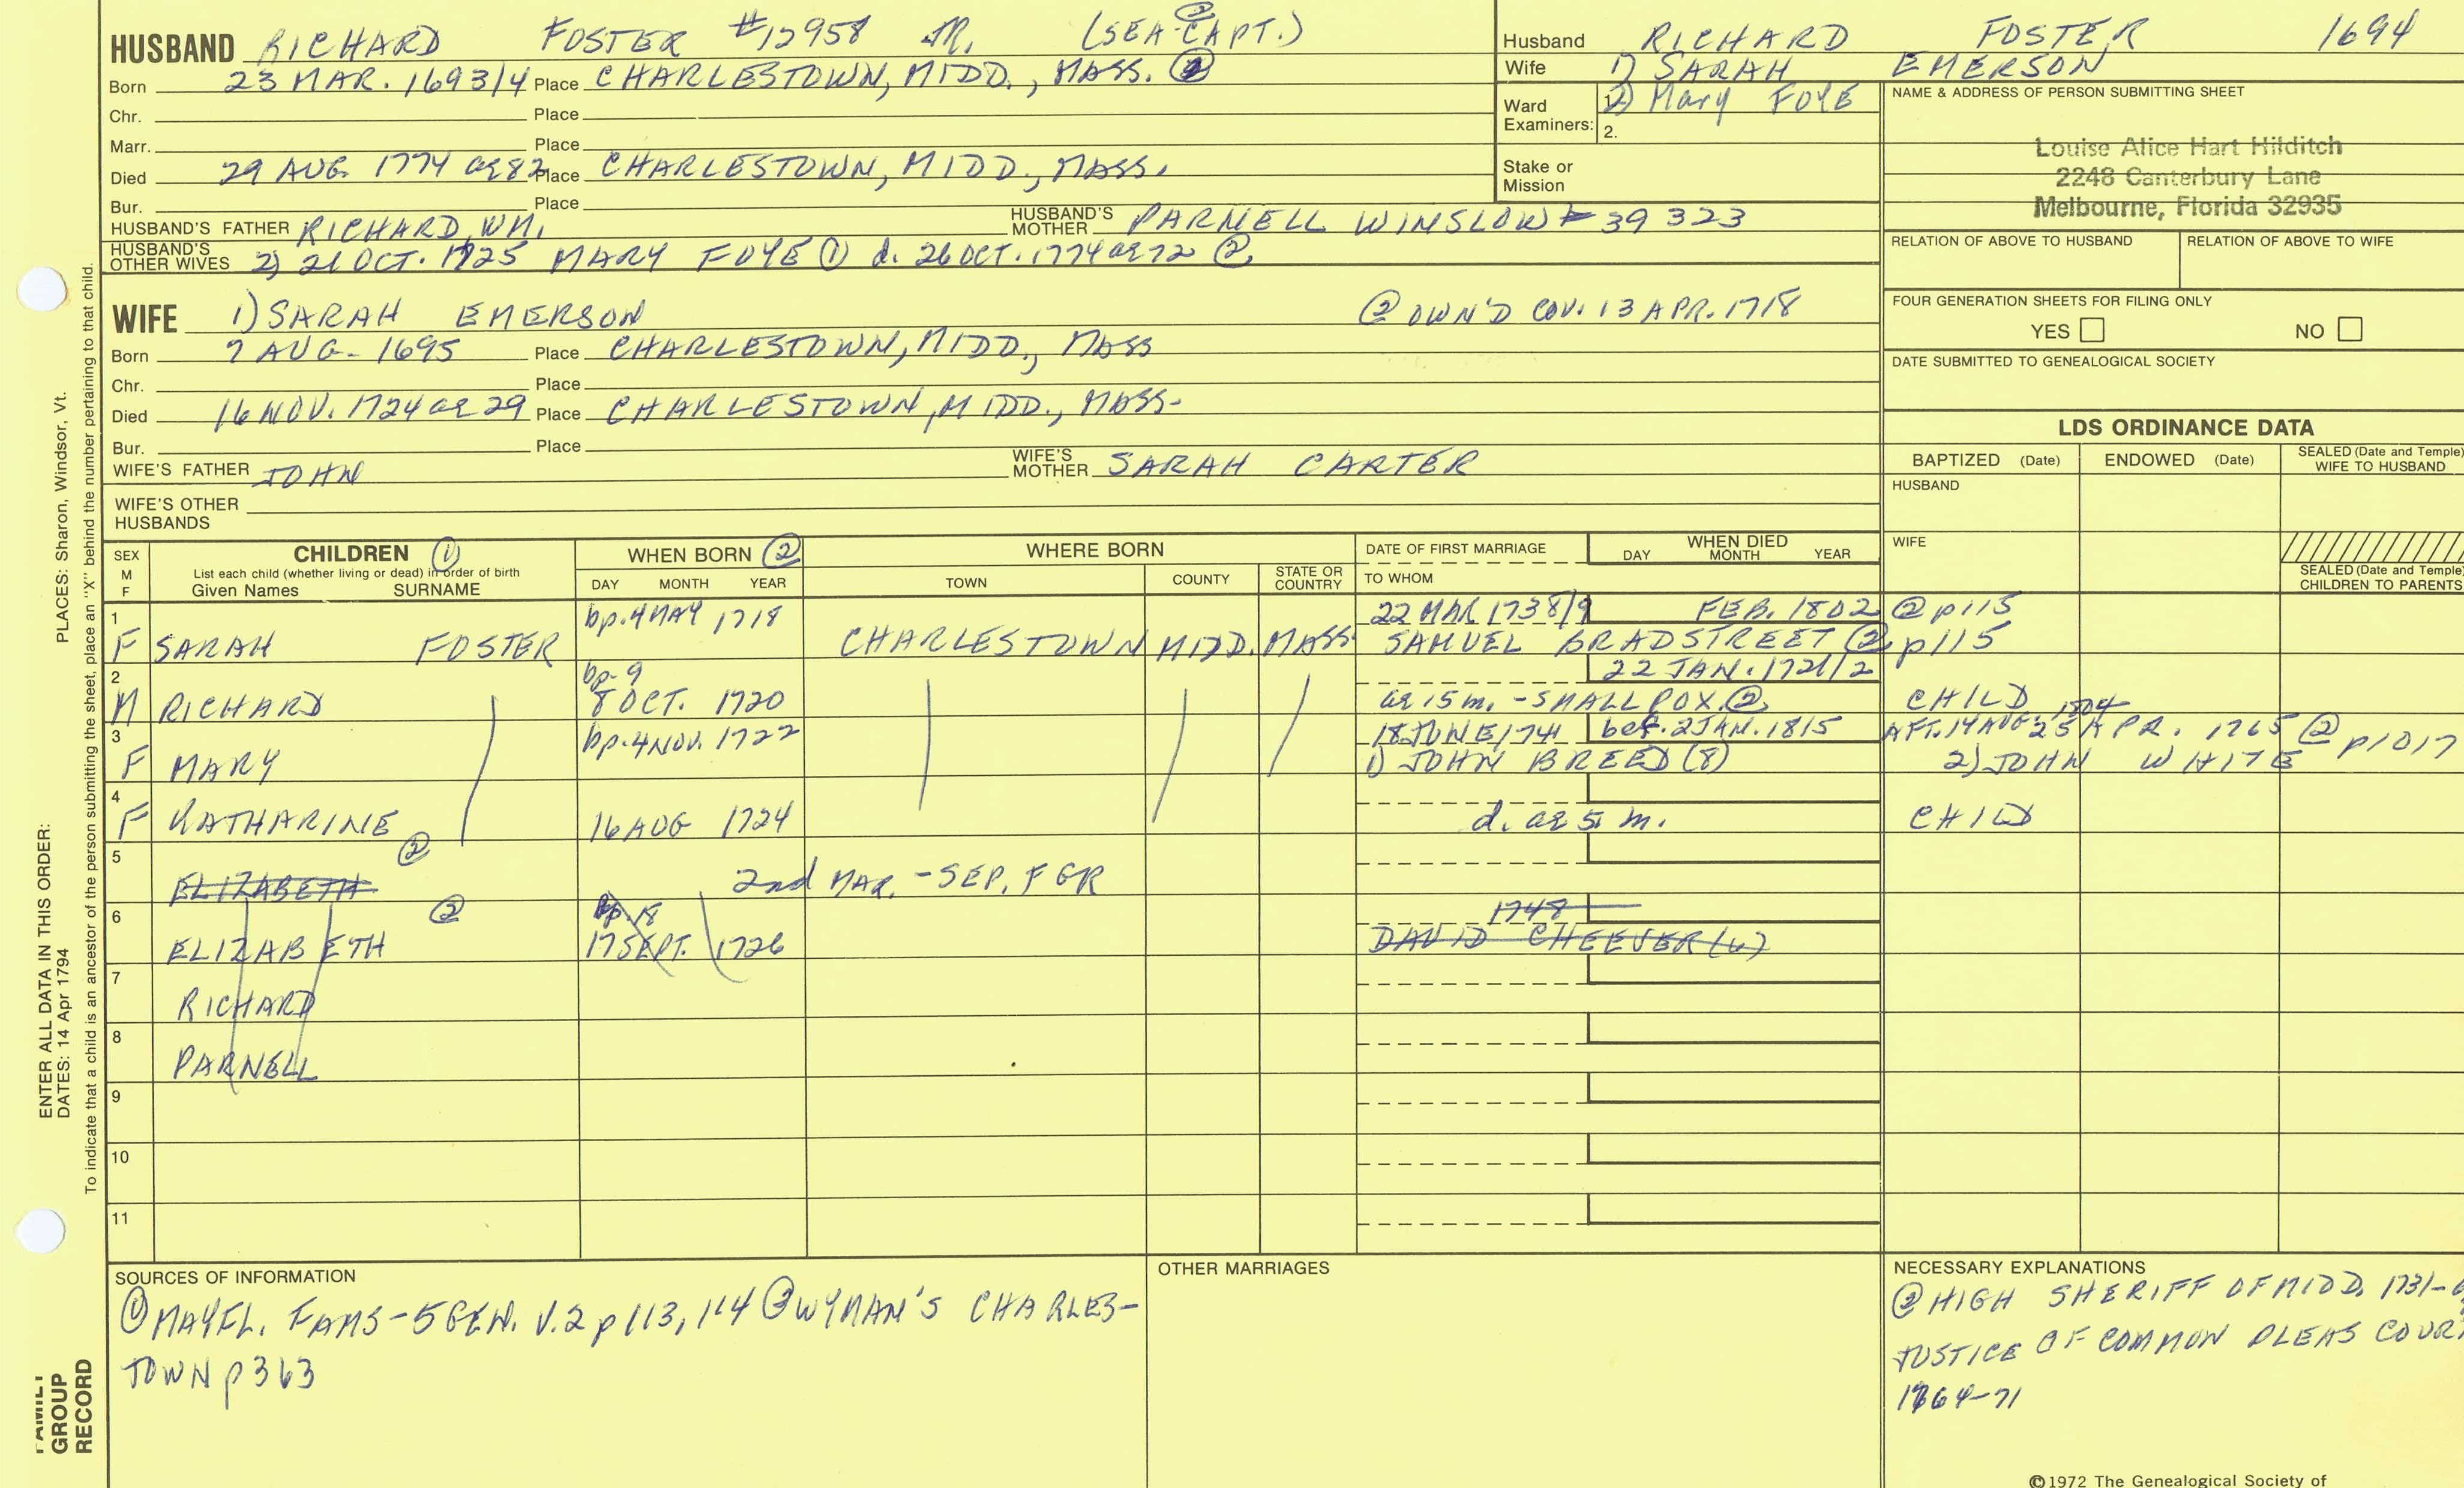 HUSBAND RICHARD FOSTER #12958 JR. (SEA-CAPT.) ②
Born 23 MAR. 1693/4 Place CHARLESTOWN, MIDD., MASS. ②
Chr. Place
Marr. Place
Died 29 AUG. 1774 ae 82 Place CHARLESTOWN, MIDD., MASS.
Bur. Place
HUSBAND'S FATHER RICHARD, WM. HUSBAND'S MOTHER PARNELL WINSLOW # 39323
HUSBAND'S OTHER WIVES 2) 21 OCT. 1725 MARY FOYE ① d. 26 OCT. 1774 ae 72 ②
WIFE 1) SARAH EMERSON ② OWN'D COV. 13 APR. 1718
Born 7 AUG. 1695 Place CHARLESTOWN, MIDD., MASS
Chr. Place
Died 16 NOV. 1724 ae 29 Place CHARLESTOWN, MIDD., MASS.
Bur. Place
WIFE'S FATHER JOHN WIFE'S MOTHER SARAH CARTER
WIFE'S OTHER HUSBANDS
Husband RICHARD FOSTER 1694
Wife 1) SARAH EMERSON
Ward Examiners: 1. 2) Mary FOYE
2.
Stake or Mission
NAME & ADDRESS OF PERSON SUBMITTING SHEET
Louise Alice Hart Hilditch
2248 Canterbury Lane
Melbourne, Florida 32935
RELATION OF ABOVE TO HUSBAND RELATION OF ABOVE TO WIFE
FOUR GENERATION SHEETS FOR FILING ONLY
YES NO
DATE SUBMITTED TO GENEALOGICAL SOCIETY
LDS ORDINANCE DATA
BAPTIZED (Date) ENDOWED (Date) SEALED (Date and Temple) WIFE TO HUSBAND
HUSBAND
WIFE
SEALED (Date and Temple) CHILDREN TO PARENTS
SEX M F CHILDREN ① WHEN BORN ② WHERE BORN DATE OF FIRST MARRIAGE WHEN DIED
List each child (whether living or dead) in order of birth
Given Names SURNAME DAY MONTH YEAR TOWN COUNTY STATE OR COUNTRY TO WHOM DAY MONTH YEAR
1 bp. 4 MAY 1718 22 MAR 1738/9 FEB. 1802 ② p115
F SARAH FOSTER CHARLESTOWN MIDD. MASS SAMUEL BRADSTREET ② p115
2 bp. 9 22 JAN. 1721/2
M RICHARD 8 OCT. 1720 ae 15 m. - SMALLPOX ② CHILD
3 bp. 4 NOV. 1722 18 JUNE 1741 bef. 2 JAN. 1815 AFT. 14 AUG 1804 25 APR. 1765 ② p1017
F MARY 1) JOHN BREED (8) 2) JOHN WHITE
4
F KATHARINE 16 AUG 1724 d. ae 5 m. CHILD
5 ②
ELIZABETH 2nd MAR. - SEP. FGR
6 ② bp. 18 1748
ELIZABETH 17 SEPT. 1726 DAVID CHEEVER (6)
7
RICHARD
8
PARNELL
9
10
11
SOURCES OF INFORMATION
① MAYFL. FAMS - 5 GEN. V.2 p 113, 114 ② WYMAN'S CHARLES-
TOWN p 363
OTHER MARRIAGES
NECESSARY EXPLANATIONS
② HIGH SHERIFF OF MIDD. 1731-
JUSTICE OF COMMON PLEAS COUR
1764-71
©1972 The Genealogical Society of
PLACES: Sharon, Windsor, Vt.
ENTER ALL DATA IN THIS ORDER:
DATES: 14 Apr 1794
To indicate that a child is an ancestor of the person submitting the sheet, place an "X" behind the number pertaining to that child.
FAMILY
GROUP
RECORD